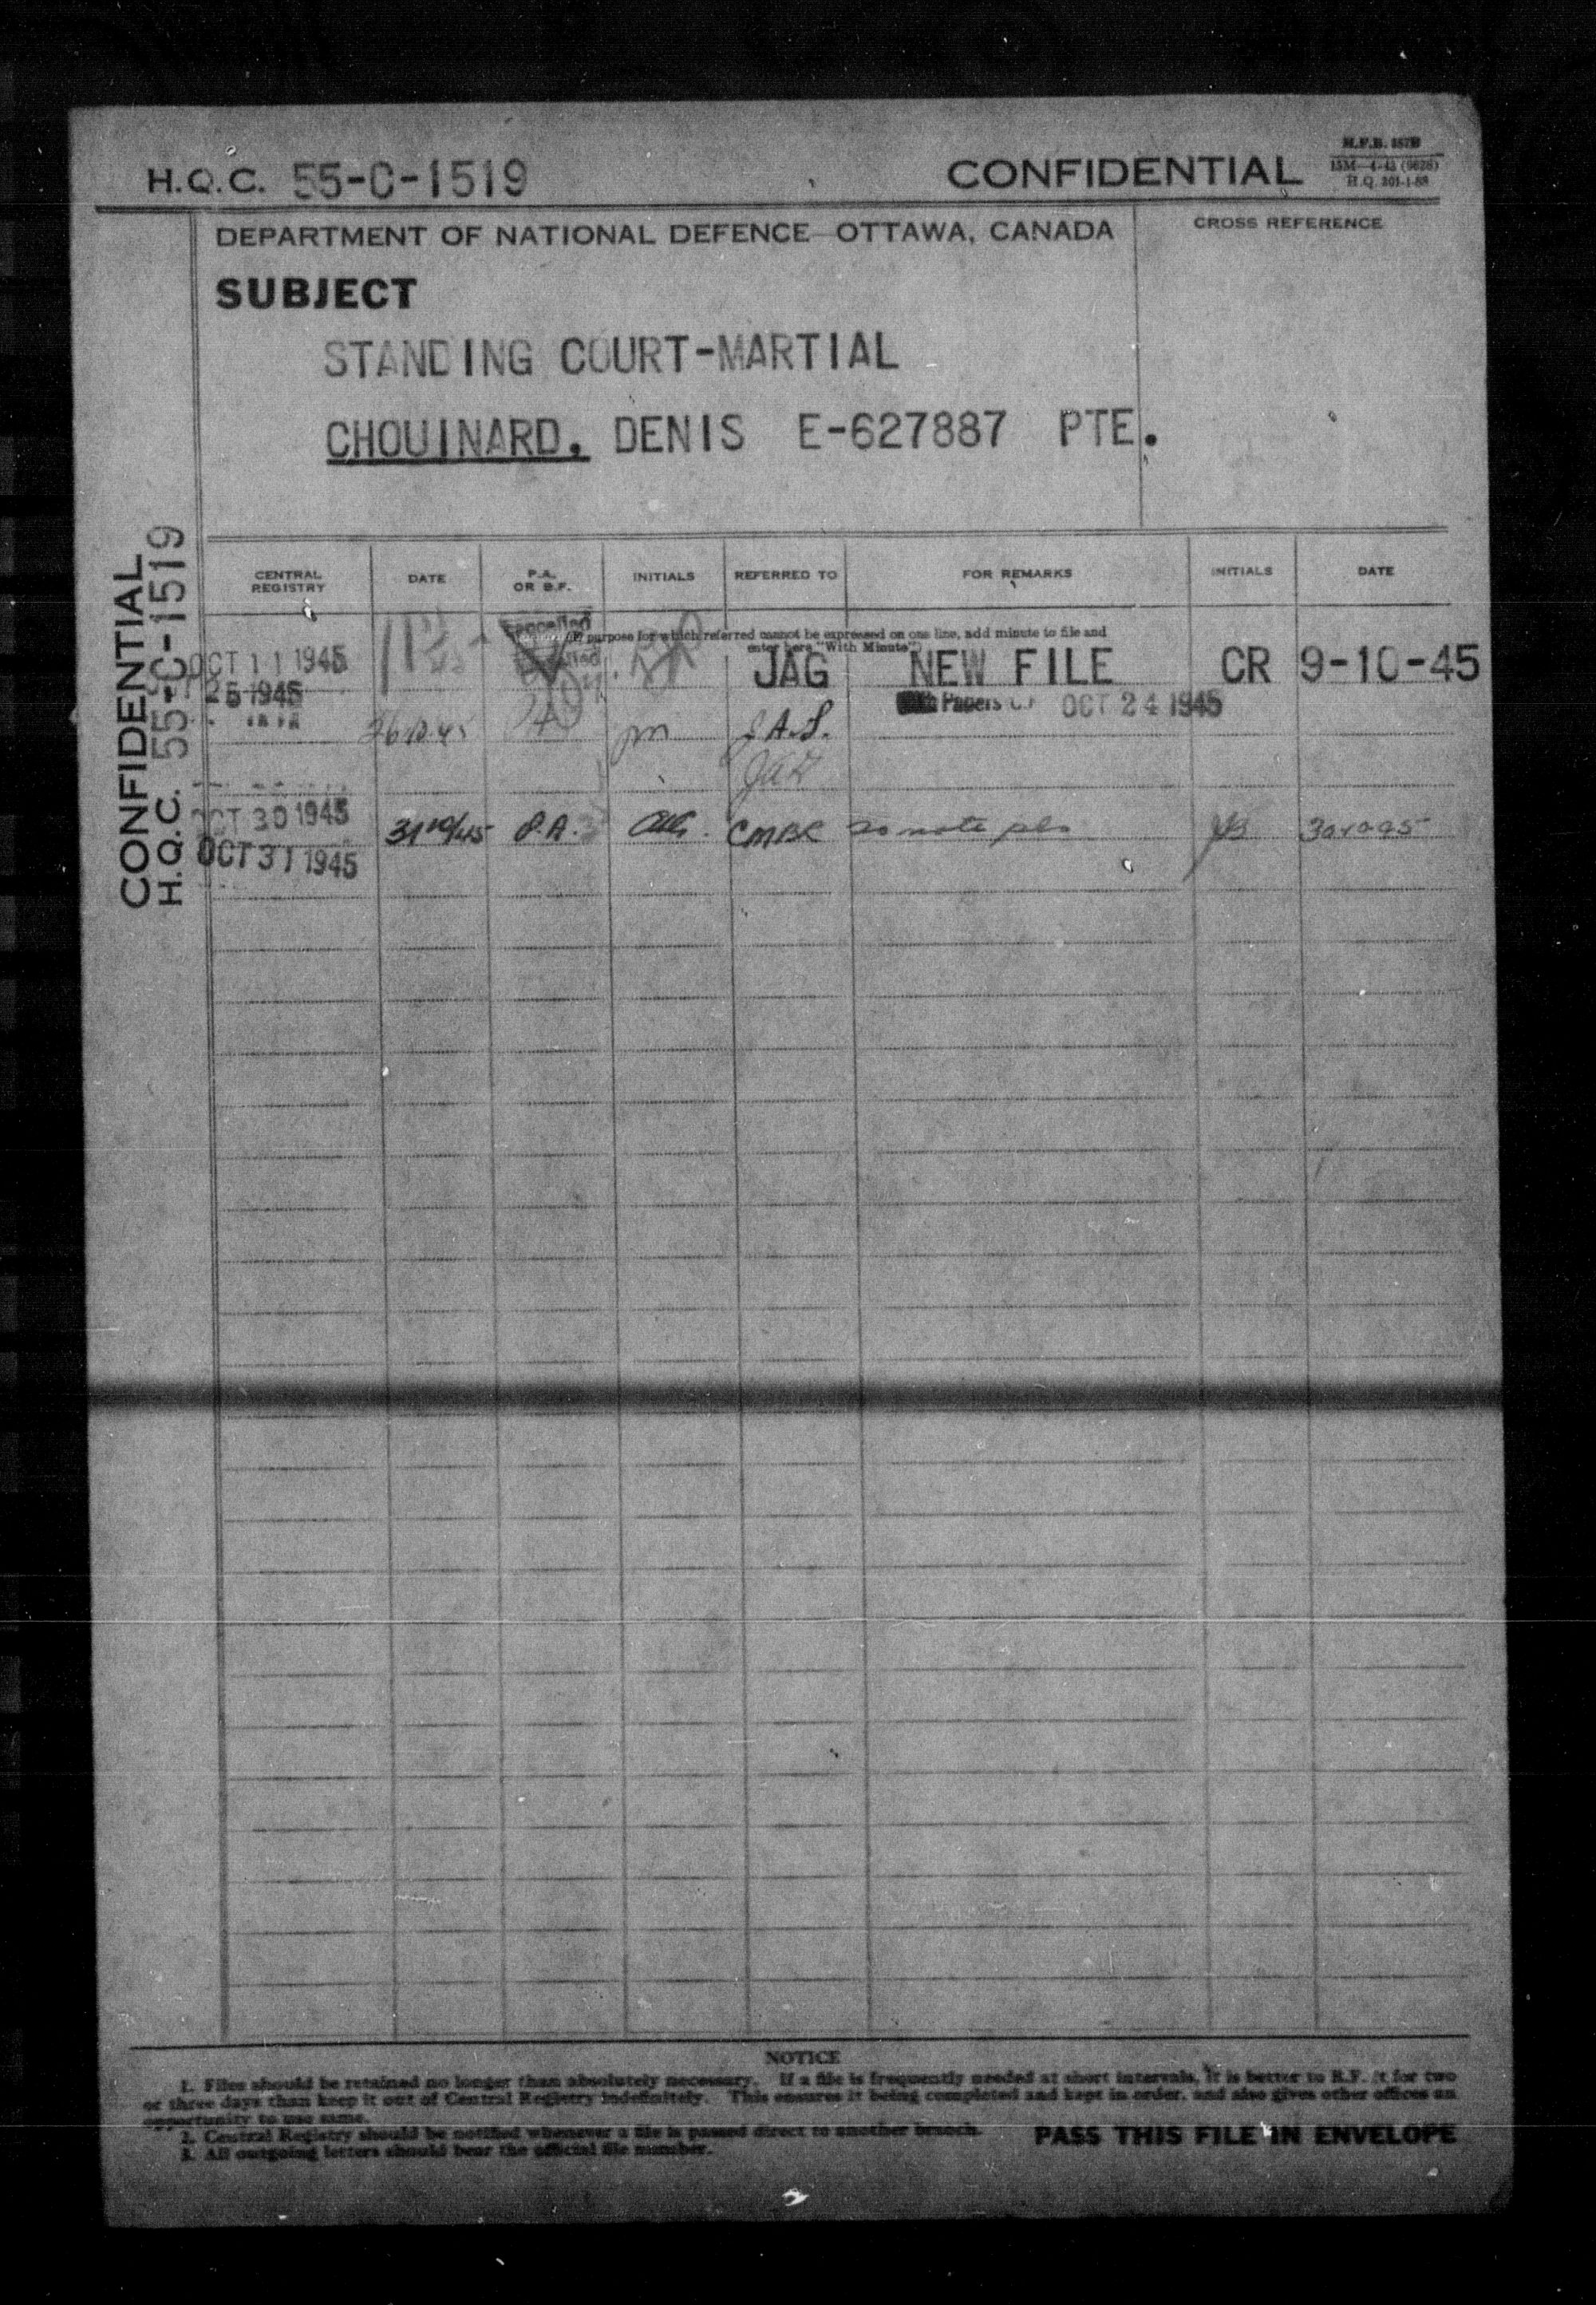 H.Q.C. 55-C-1519
CONFIDENTIAL
M.F.B. 357B
H.Q. 301-1-58
DEPARTMENT OF NATIONAL DEFENCE OTTAWA, CANADA
CROSS REFERENCE
SUBJECT
STANDING COURT-MARTIAL
CHOUINARD, DENIS E-627887 PTE.
CONFIDENTIAL
H.Q.C. 55-C-1519
CENTRAL REGISTRY
DATE
P.A. OR B.F.
INITIALS
REFERRED TO
FOR REMARKS
INITIALS
DATE
Cancelled
purpose for which referred cannot be expressed on one line, add minute to file and
enter here "With Minute")
OCT 11 1945
JAG NEW FILE CR 9-10-45
25 1945
Papers OCT 24 1945
OCT 30 1945
31 10/45 P.A. to note pls
OCT 31 1945
NOTICE
1. Files should be retained no longer than absolutely necessary. If a file is frequently needed at short intervals, it is better to B.F. it for two
or three days than keep it out of Central Registry indefinitely. This ensures it being completed and kept in order, and also gives other offices an
opportunity to use same.
2. Central Registry should be notified whenever a file is passed direct to another branch.
3. All outgoing letters should bear the official file number.
PASS THIS FILE IN ENVELOPE